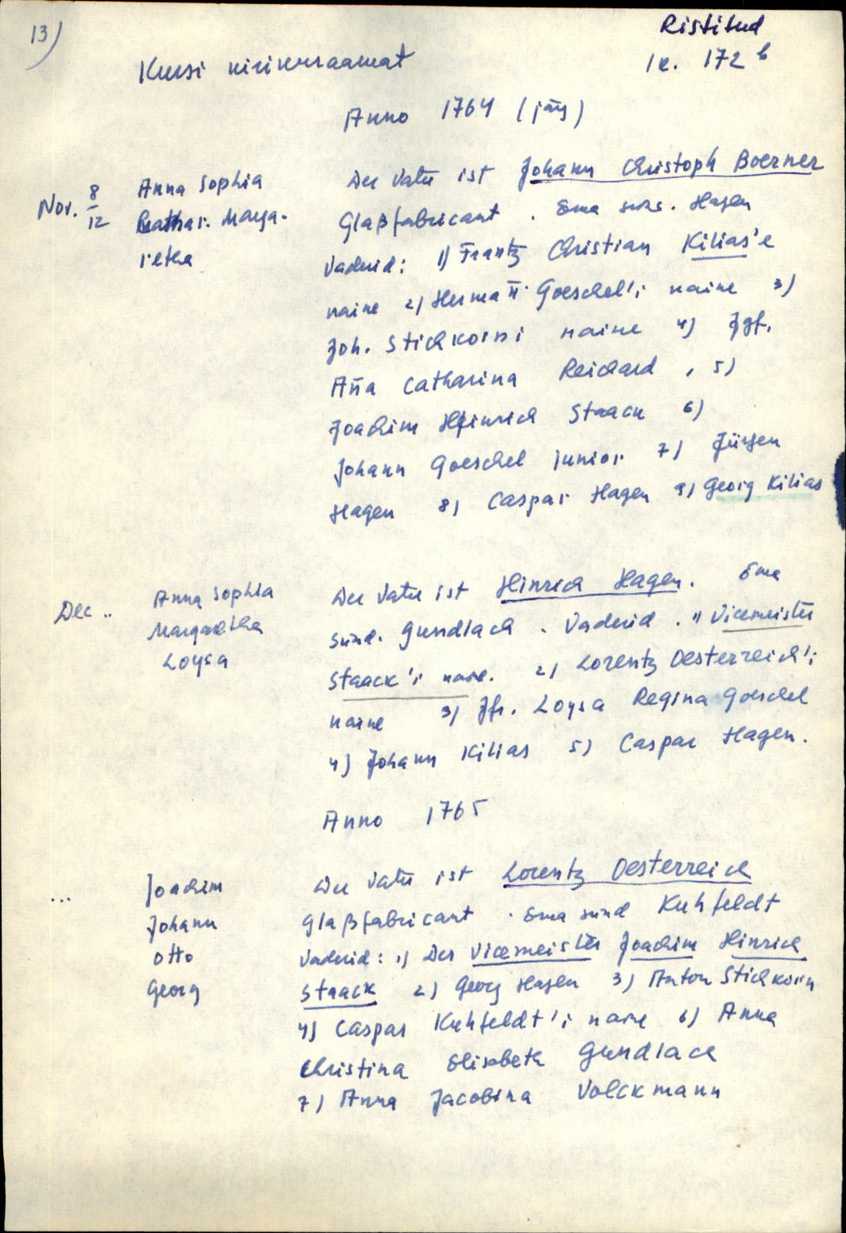 13)
Ristitud
lk. 172 b
Kursi kirikuraamat
Anno 1764 (järg)
Nov. 8/12
Anna Sophia
Margaretha
Der Vater ist Johann Christoph Boerner
Glaßfabricant. Ema sünd. Hagen
Vaderid: 1) Frantz Christian Kilias'e
naine 2) Herman̄ Goeschel'i naine 3)
Joh. Stichkorni naine 4) Jgf.
An̄a Catharina Reichard, 5)
Joachim Hinrich Staack 6)
Johann Goeschel junior 7) Jürgen
Hagen 8) Caspar Hagen 9) Georg Kilias
Dec ..
Anna Sophia
Margaretha
Loysa
Der Vater ist Hinrich Hagen. Ema
sünd. Gundlach. Vaderid. 1) Vicemeister
Staack'i naine. 2) Lorentz Oesterreich'i
naine 3) Jfr. Loysa Regina Goeschel
4) Johann Kilias 5) Caspar Hagen.
Anno 1765
...
Joachim
Johann
Otto
Georg
Der Vater ist Lorentz Oesterreich
Glaßfabricant. Ema sünd Kuhfeldt
Vaderid: 1) Der Vicemeister Joachim Hinrich
Staack 2) Georg Hagen 3) Anton Stichkorn
4) Caspar Kuhfeldt'i naine 6) Anna
Christina Elisabeth Gundlach
7) Anna Jacobina Volckmann